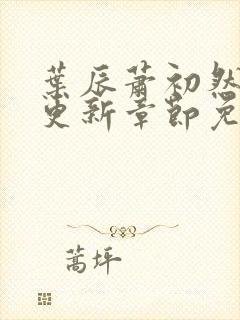 葉辰蕭初然
更新章節免
蒿坪